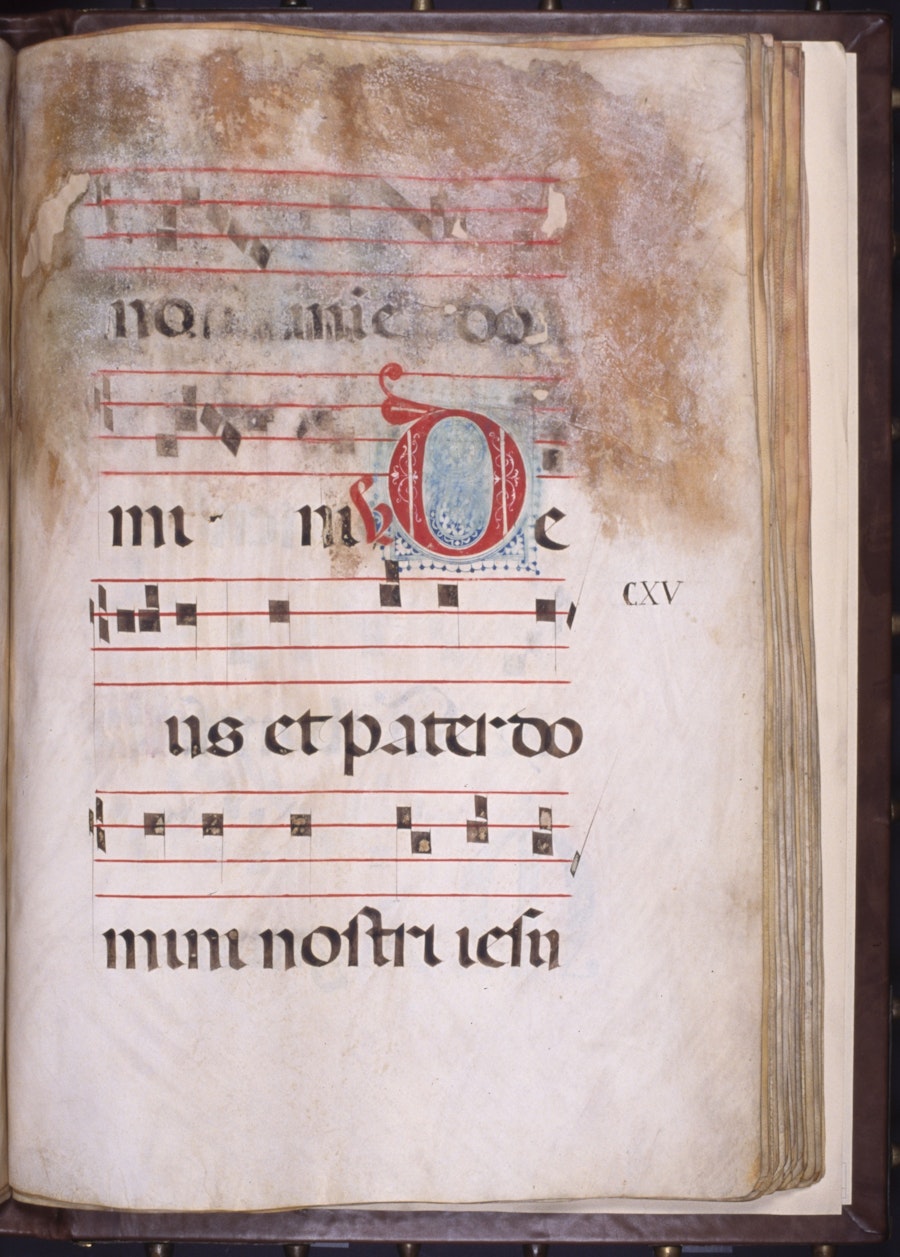 no mi e do
mi ni V De
CXV
us et pater do
mini nostri iesu